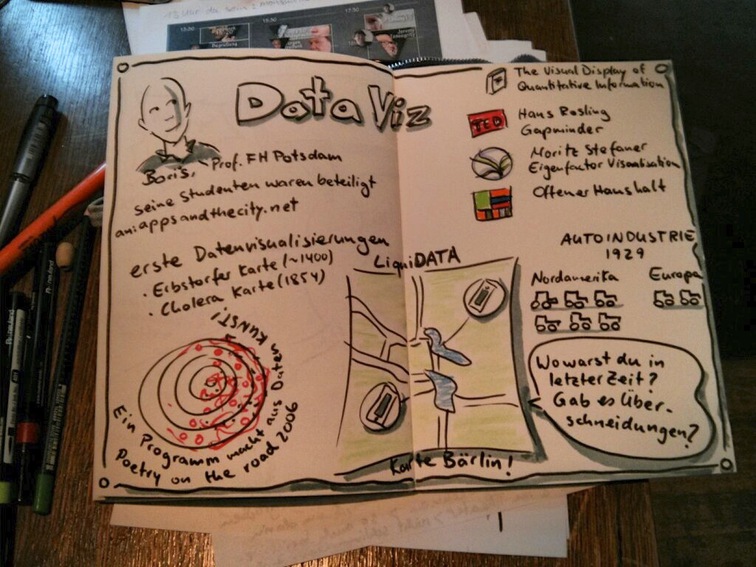 15:30
16:30
17:30
Data Viz
Boris, Prof. FH Potsdam
seine Studenten waren beteiligt
an: appsandthecity.net
erste Datenvisualisierungen
• Ebstorfer Karte (~1400)
• Cholera Karte (1854)
Ein Programm macht aus Daten KUNST!
Poetry on the road 2006
The Visual Display of
Quantitative Information
TED
Hans Rosling
Gapminder
Moritz Stefaner
Eigenfactor Visualisation
Offener Haushalt
AUTOINDUSTRIE
1929
Nordamerika
Europa
LiquiDATA
Karte Bärlin!
Wo warst du in
letzter Zeit?
Gab es Über-
schneidungen?